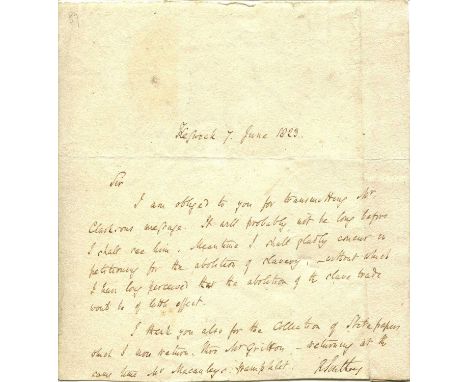 89
Keswick 7. June 1823.
Sir
I am obliged to you for transmitting Mr
Clarksons message. It will probably not be long before
I shall see him. Meantime I shall gladly concur in
petitioning for the abolition of slavery, – without which
I have long perceived that the abolition of the slave trade
would be of little effect.
I thank you also for the Collection of State papers
which I now return. thro Mr – returning at the
same time Mr Macauleys pamphlet. R Southey.